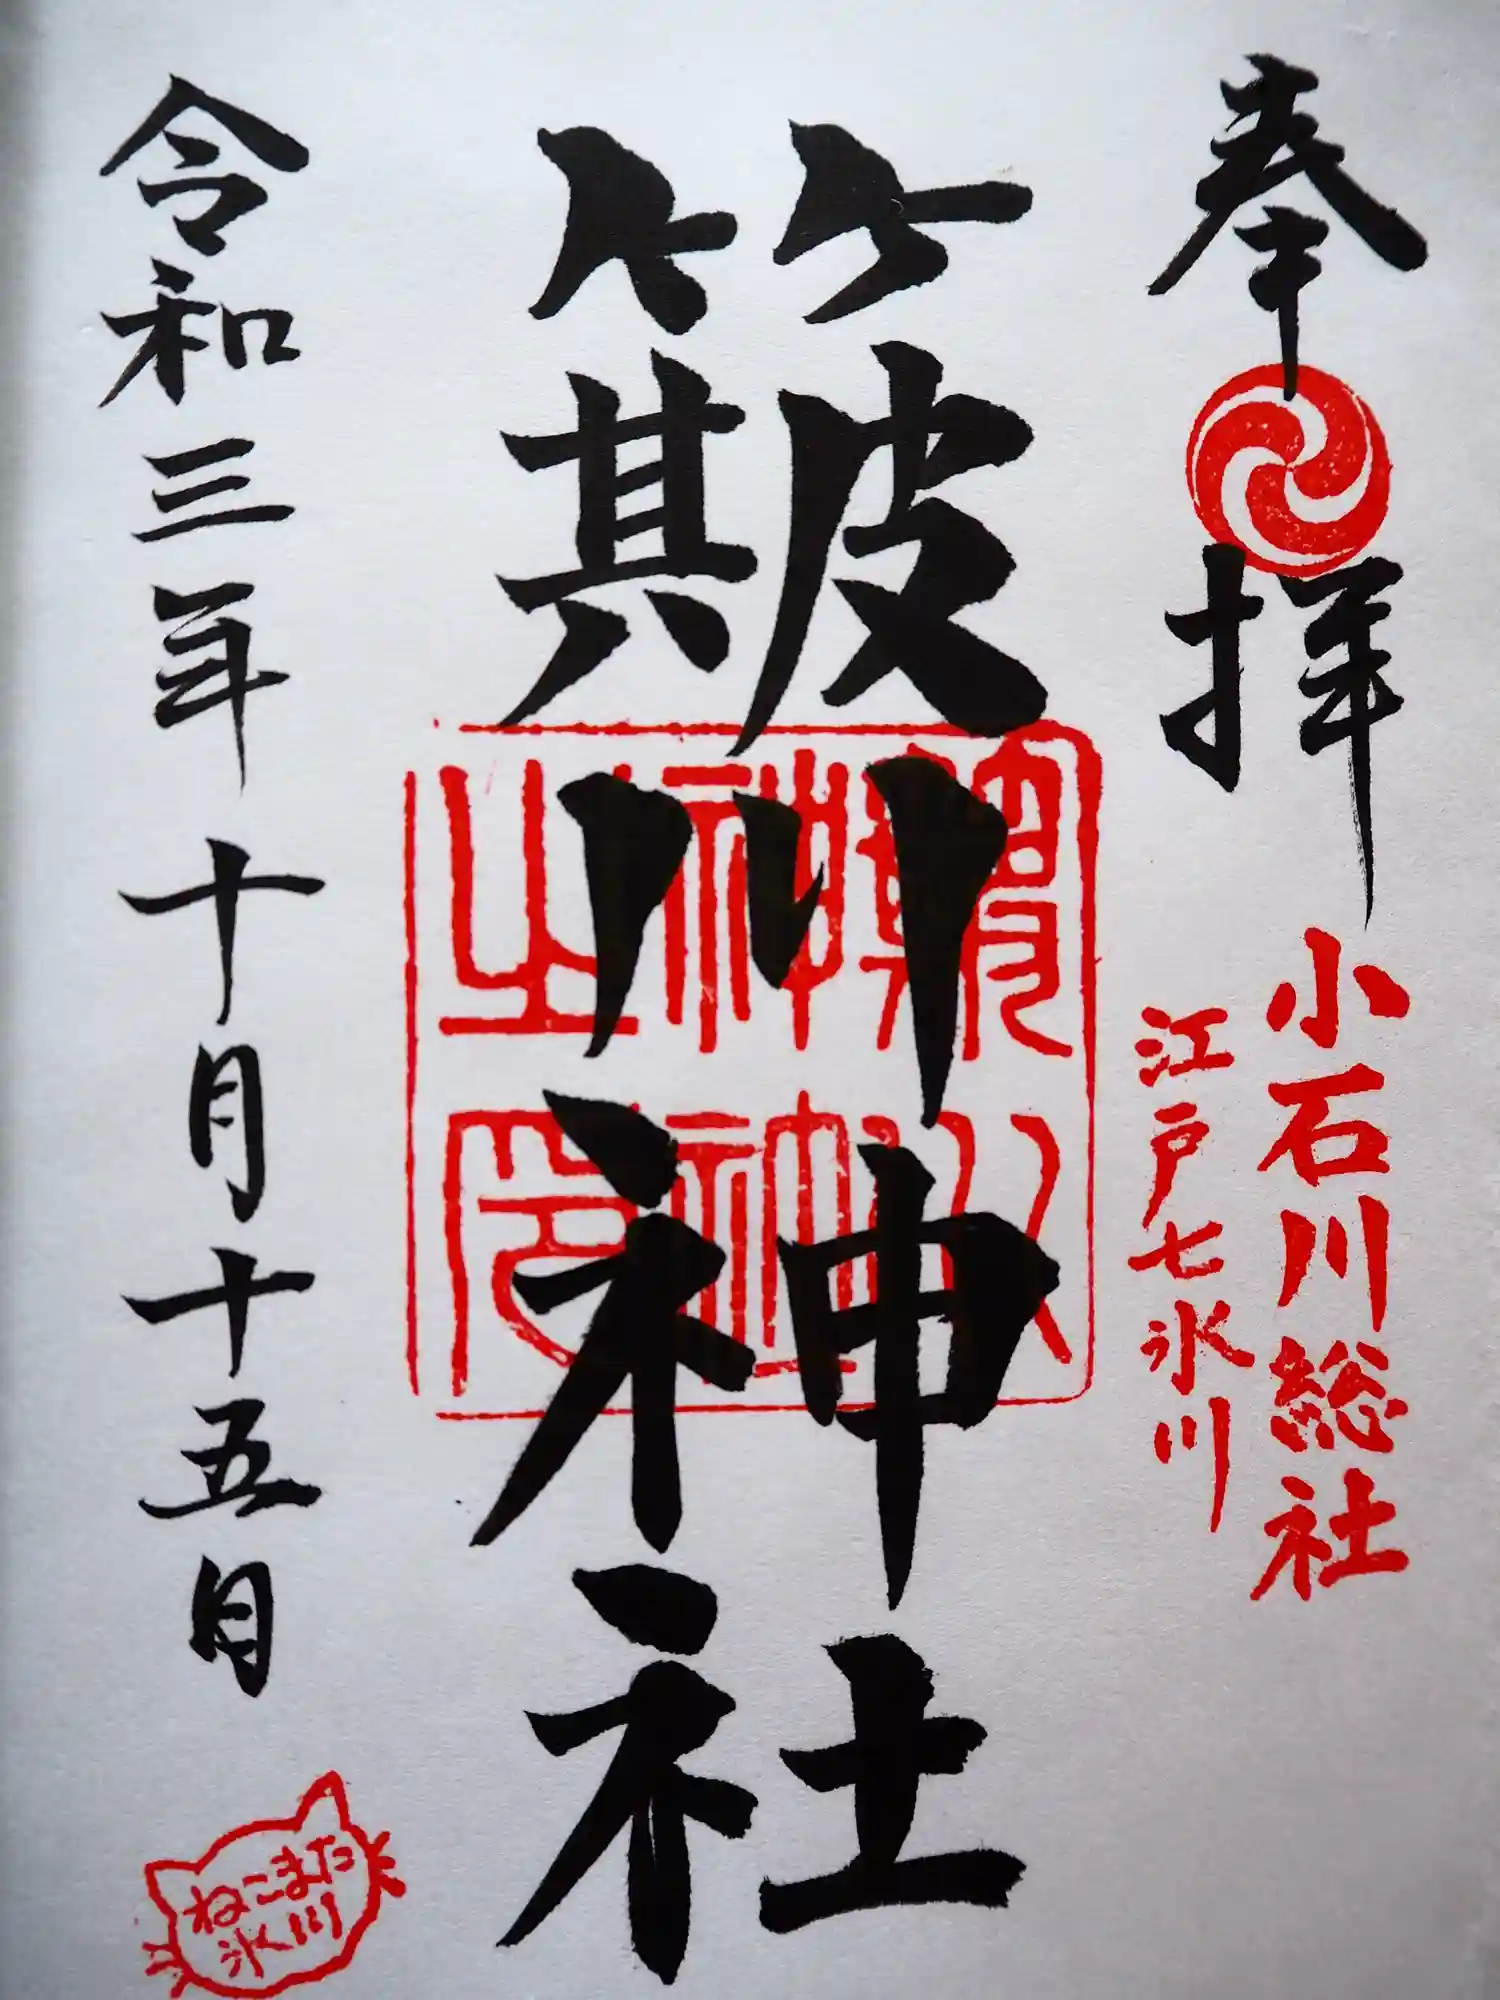 奉拝
小石川総社
江戸七氷川
簸川神社
簸川神社神社之印
令和三年十月十五日
ねこまた
氷川